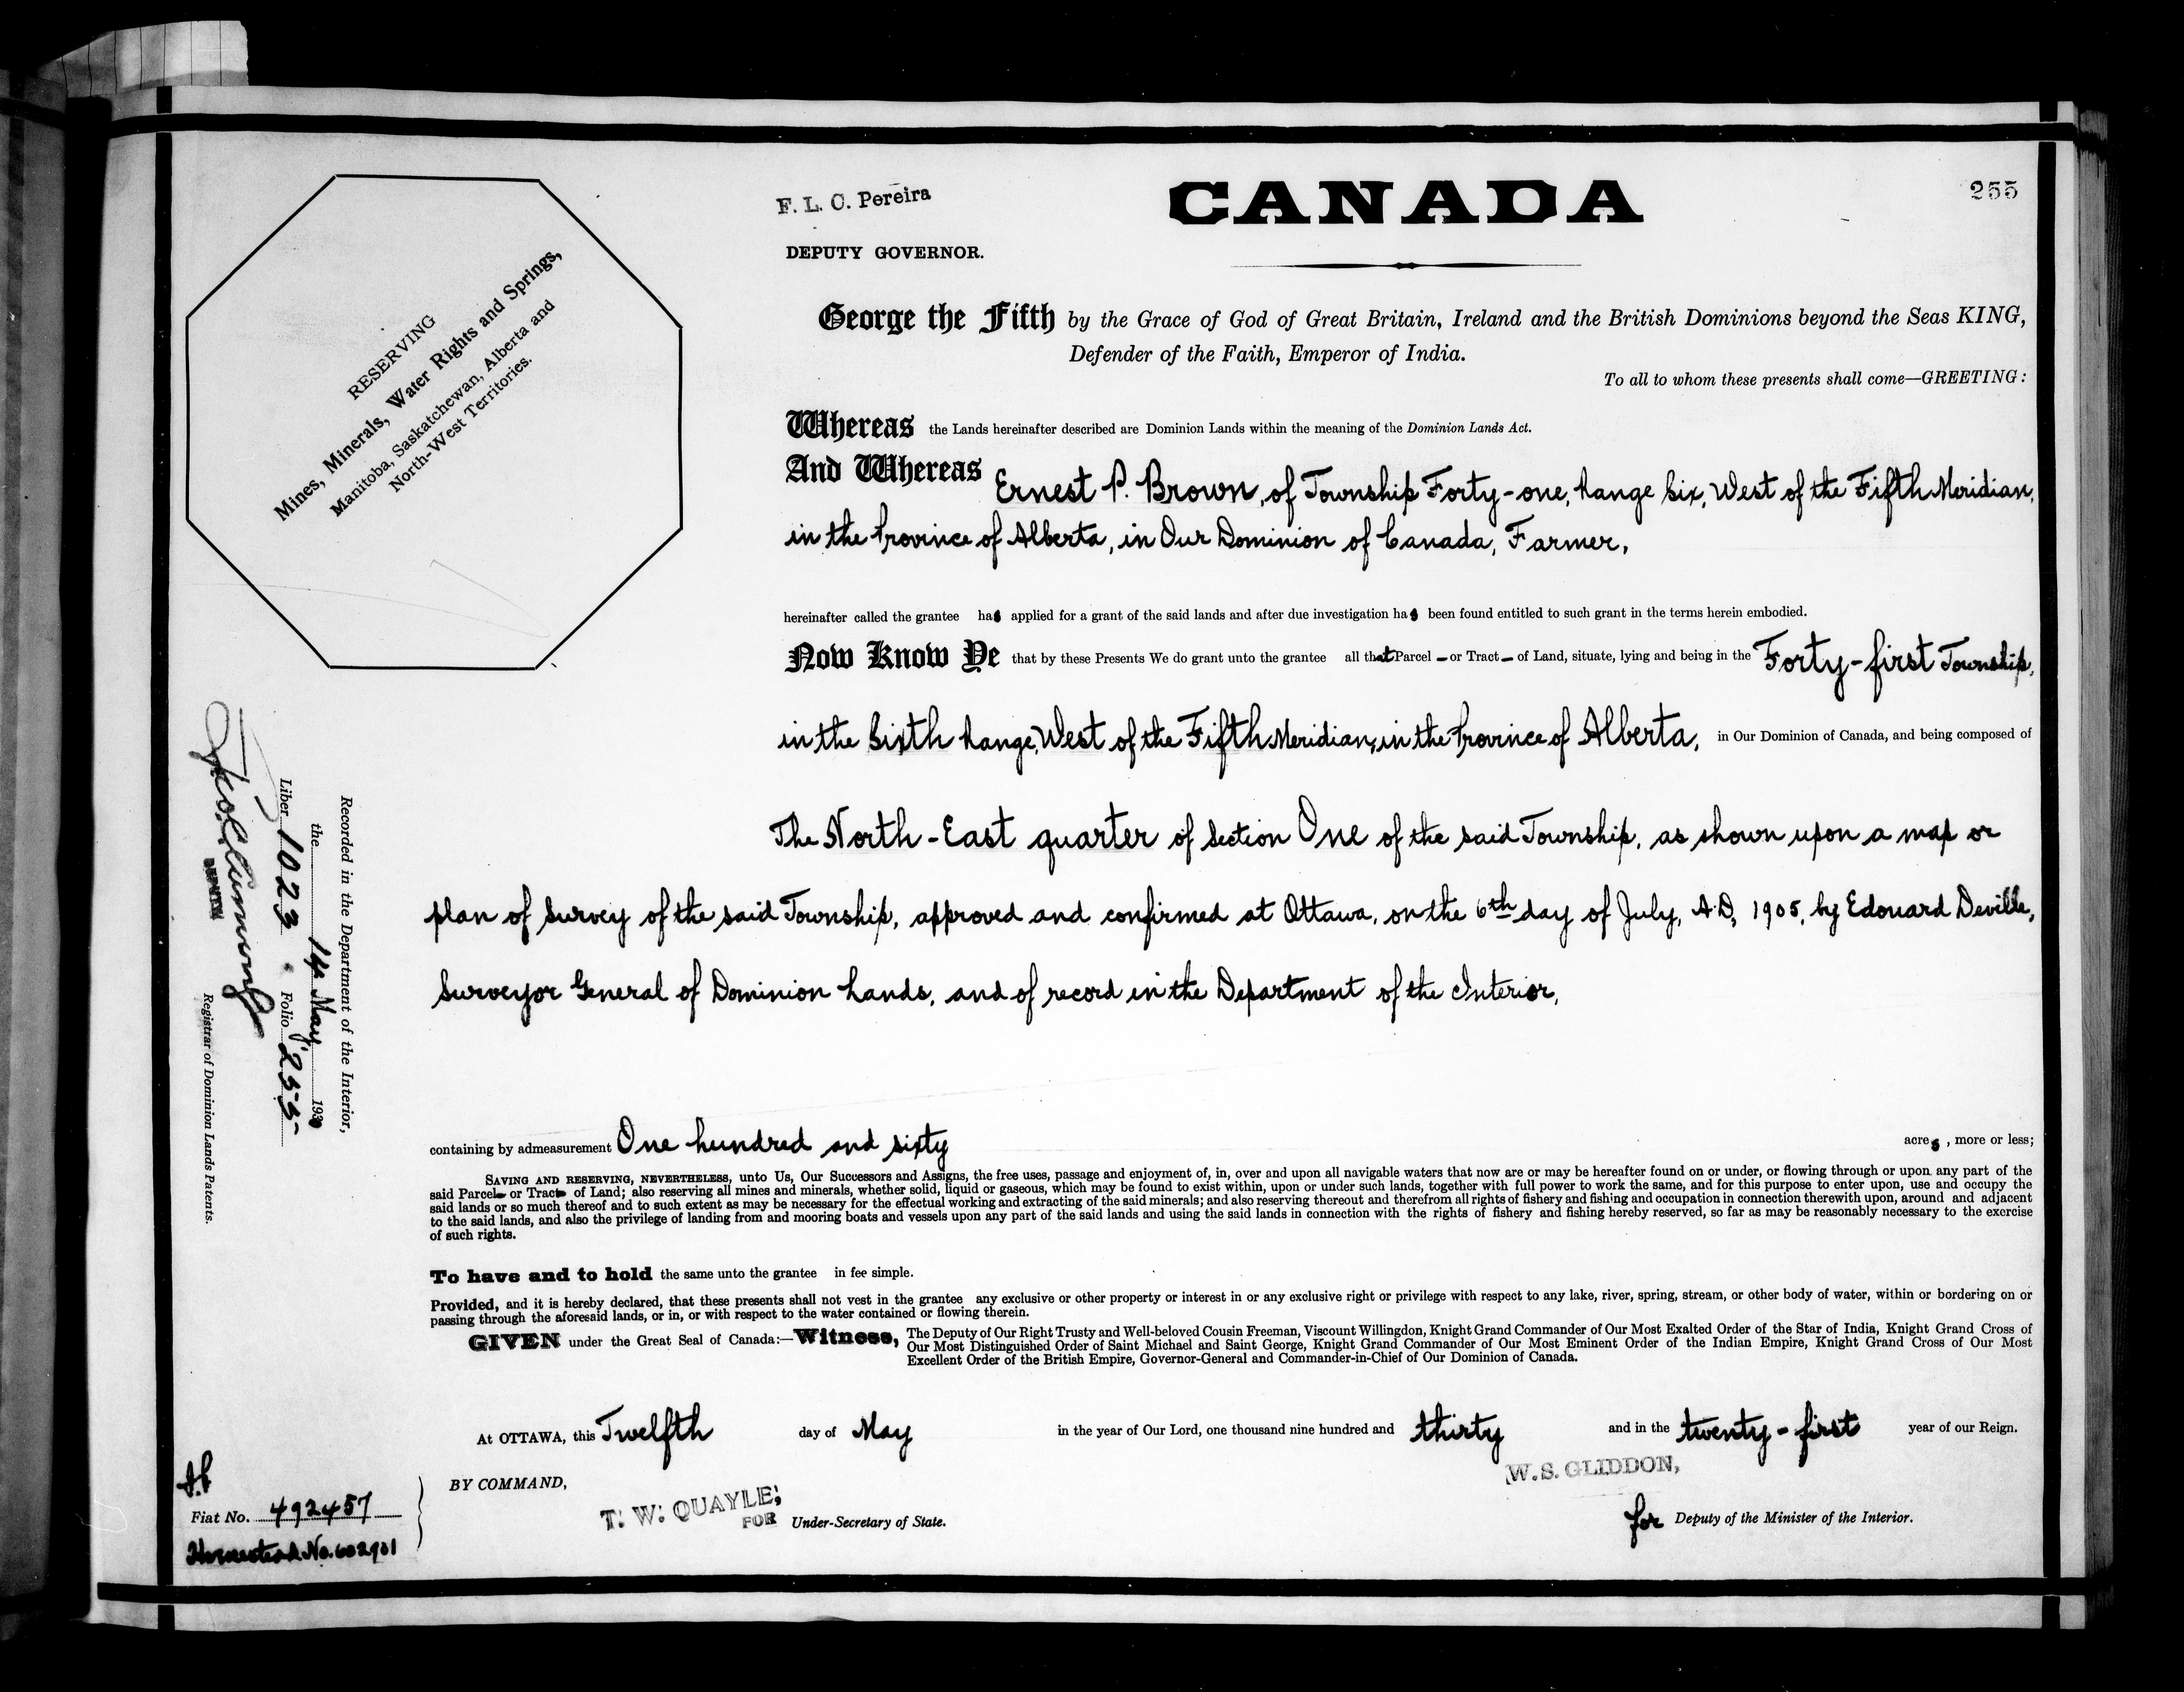 F. L. C. Pereira
DEPUTY GOVERNOR.
CANADA
255
RESERVING
Mines, Minerals, Water Rights and Springs,
Manitoba, Saskatchewan, Alberta and
North-West Territories.
George the Fifth by the Grace of God of Great Britain, Ireland and the British Dominions beyond the Seas KING,
Defender of the Faith, Emperor of India.
To all to whom these presents shall come—GREETING:
Whereas the Lands hereinafter described are Dominion Lands within the meaning of the Dominion Lands Act.
And Whereas Ernest P. Brown, of Township Forty-one, Range Six, West of the Fifth Meridian,
in the Province of Alberta, in Our Dominion of Canada, Farmer,
hereinafter called the grantee has applied for a grant of the said lands and after due investigation has been found entitled to such grant in the terms herein embodied.
Now Know Ye that by these Presents We do grant unto the grantee all that Parcel – or Tract – of Land, situate, lying and being in the Forty-first Township,
in the Sixth Range, West of the Fifth Meridian, in the Province of Alberta, in Our Dominion of Canada, and being composed of
The North-East quarter of Section One of the said Township, as shown upon a map or
plan of Survey of the said Township, approved and confirmed at Ottawa, on the 6th day of July, A.D, 1905, by Edouard Deville,
Surveyor General of Dominion Lands, and of record in the Department of the Interior,
containing by admeasurement One hundred and sixty acres, more or less;
SAVING AND RESERVING, NEVERTHELESS, unto Us, Our Successors and Assigns, the free uses, passage and enjoyment of, in, over and upon all navigable waters that now are or may be hereafter found on or under, or flowing through or upon any part of the
said Parcel – or Tract – of Land; also reserving all mines and minerals, whether solid, liquid or gaseous, which may be found to exist within, upon or under such lands, together with full power to work the same, and for this purpose to enter upon, use and occupy the
said lands or so much thereof and to such extent as may be necessary for the effectual working and extracting of the said minerals; and also reserving thereout and therefrom all rights of fishery and fishing and occupation in connection therewith upon, around and adjacent
to the said lands, and also the privilege of landing from and mooring boats and vessels upon any part of the said lands and using the said lands in connection with the rights of fishery and fishing hereby reserved, so far as may be reasonably necessary to the exercise
of such rights.
To have and to hold the same unto the grantee in fee simple.
Provided, and it is hereby declared, that these presents shall not vest in the grantee any exclusive or other property or interest in or any exclusive right or privilege with respect to any lake, river, spring, stream, or other body of water, within or bordering on or
passing through the aforesaid lands, or in, or with respect to the water contained or flowing therein.
GIVEN under the Great Seal of Canada:—Witness, The Deputy of Our Right Trusty and Well-beloved Cousin Freeman, Viscount Willingdon, Knight Grand Commander of Our Most Exalted Order of the Star of India, Knight Grand Cross of
Our Most Distinguished Order of Saint Michael and Saint George, Knight Grand Commander of Our Most Eminent Order of the Indian Empire, Knight Grand Cross of Our Most
Excellent Order of the British Empire, Governor-General and Commander-in-Chief of Our Dominion of Canada.
At OTTAWA, this Twelfth day of May in the year of Our Lord, one thousand nine hundred and thirty and in the twenty-first year of our Reign.
BY COMMAND,
T. W. QUAYLE,
FOR Under-Secretary of State.
W. S. GLIDDON,
for Deputy of the Minister of the Interior.
Recorded in the Department of the Interior,
the 14 May 1930
Liber 1023 Folio 255
DEPUTY
Registrar of Dominion Lands Patents.
Fiat No. 492457
Homestead No. 602901